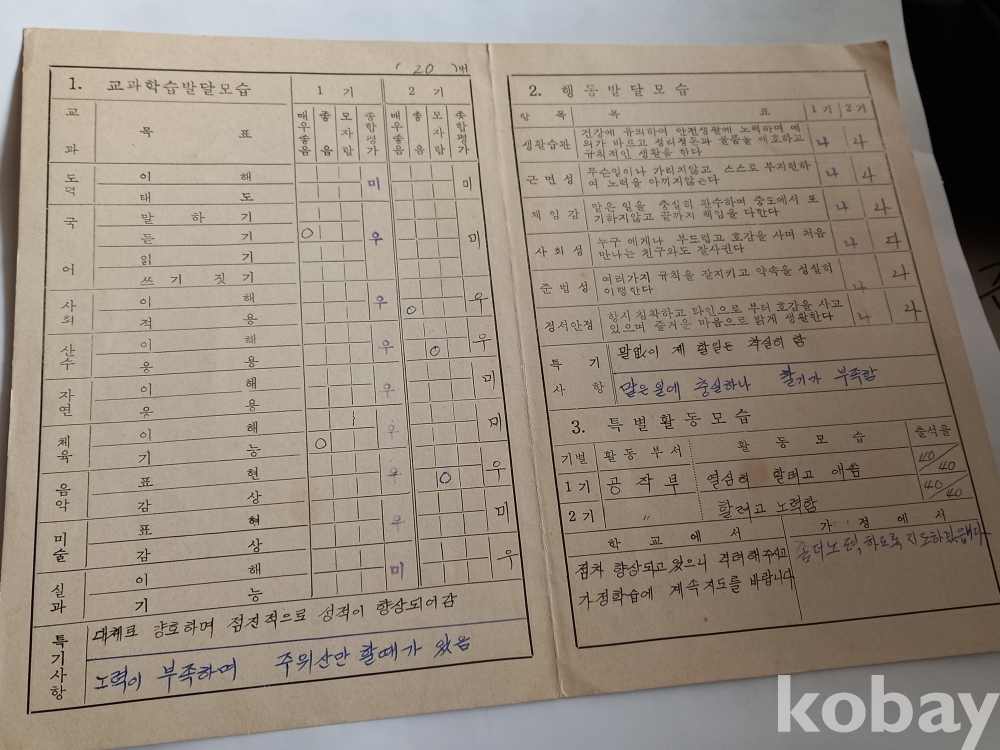 ( 20 )번
1. 교과학습발달모습
1 기 2 기
교 과 목 표 매우좋음 좋음 모자람 종합평가 매우좋음 좋음 모자람 종합평가
도덕 이 해 미 미
태 도
국 어 말 하 기 우 미
듣 기 O
읽 기
쓰 기 짓 기
사회 이 해 우 우
적 용 O
산수 이 해 우 O 우
응 용
자연 이 해 우 미
응 용
체육 이 해 우 미
기 능 O
음악 표 현 우 O 우
감 상
미술 표 현 우 미
감 상
실과 이 해 미 우
기 능
특기사항
대체로 양호하며 점진적으로 성적이 향상되어감
노력이 부족하며 주위산만 할때가 있음
2. 행동발달모습
항 목 목 표 1기 2기
생활습관 건강에 유의하여 안전생활에 노력하며 예
의가 바르고 정리정돈과 물품을 애호하고
규칙적인 생활을 한다 나 나
근 면 성 무슨일이나 가리지않고 스스로 부지런하
여 노력을 아끼지않는다 나 나
책 임 감 맡은 일을 충실히 완수하며 중도에서 포
기하지않고 끝까지 책임을 다한다 나 나
사 회 성 누구 에게나 부드럽고 호감을 사며 처음
만나는 친구와도 잘사귄다 나 다
준 법 성 여러가지 규칙을 잘지키고 약속을 성실히
이행한다 나 나
정서안정 항시 침착하고 타인으로 부터 호감을 사고
있으며 즐거운 마음으로 밝게 생활한다 나 나
특 기 사 항
말없이 제 할일은 착실히 함
맡은일에 충실하나 활기가 부족함
3. 특별활동모습
기별 활동부서 활 동 모 습 출석율
1기 공작부 열심히 할려고 애씀 40/40
2기 〃 할려고 노력함 40/40
학 교 에 서
점차 향상되고 있으니 격려해주시고
가정학습에 계속 지도를 바랍니다
가 정 에 서
더 노력하도록 지도하겠읍니다
kobay